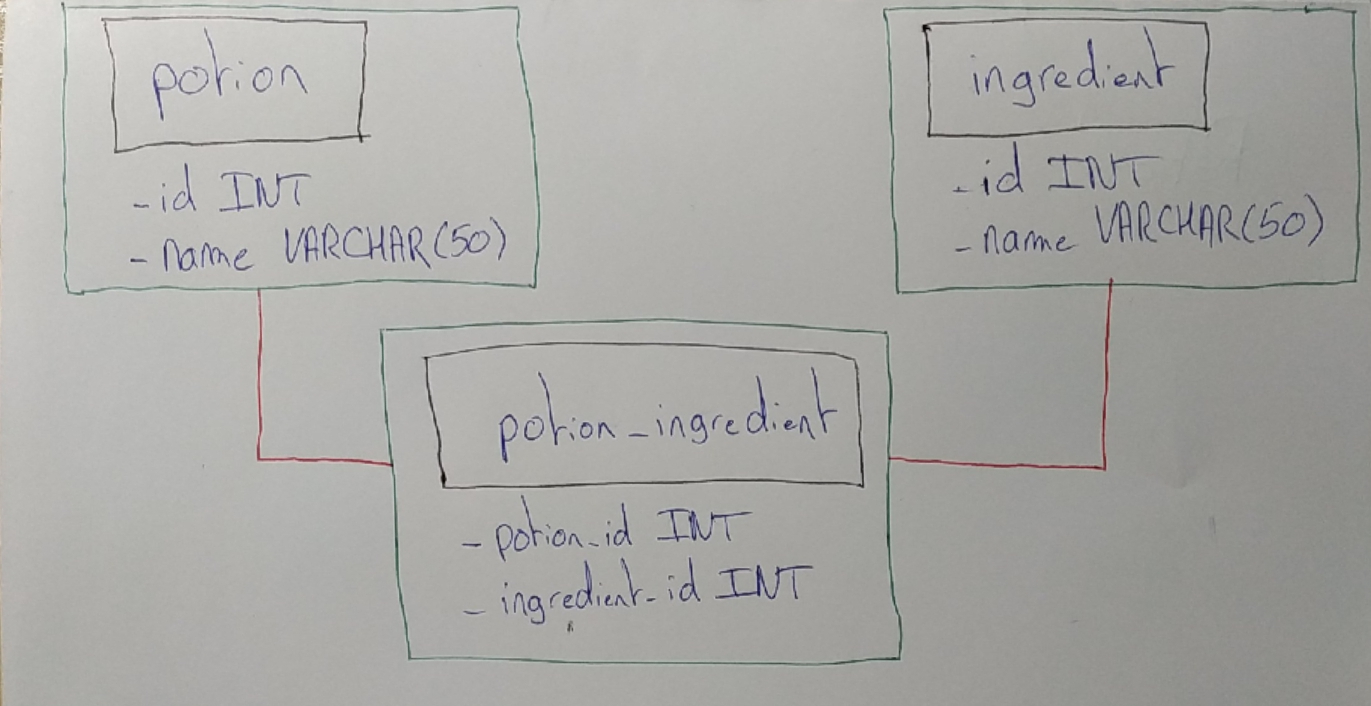 potion
-id INT
-name VARCHAR(50)
ingredient
-id INT
-name VARCHAR(50)
potion_ingredient
-potion_id INT
-ingredient_id INT